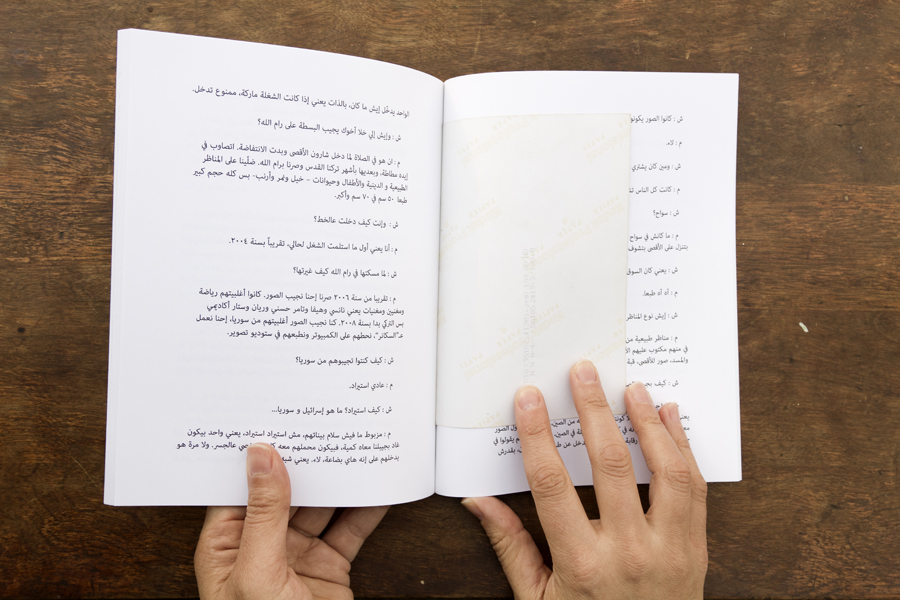 ش : كانوا الصور يكونوا
م : لاء.
ش : ومين كان يشتري
م : كانت كل الناس
ش : سواح؟
م : ما كانش في سواح
بتنزل على الأقصى بتشوف
ش : يعني كان السوق
م : أه أه طبعا.
ش : إيش نوع المناظر
م : مناظر طبيعية من
في منهم مكتوب عليهم
والمسند، صور للأقصى، قبة
ش : كيف
يعني
الصور
يقولوا في
بقدرش
الواحد يدخّل إيش ما كان، بالذات يعني إذا كانت الشغلة ماركة، ممنوع تدخل.
ش : وإيش إلي خلا أخوك يجيب البسطة على رام الله؟
م : ان هو في الصلاة لما دخل شارون الأقصى وبدت الانتفاضة. اتصاوب في
إيده مطاطة، وبعديها بأشهر تركنا القدس وصرنا برام الله. ضلّينا على المناظر
الطبيعية و الدينية والأطفال وحيوانات – خيل ونمر وأرنب- بس كله حجم كبير
طبعا ٥٠ سم في ٧٠ سم وأكبر.
ش : وإنت كيف دخلت عالخط؟
م : أنا يعني أول ما استلمت الشغل لحالي، تقريباً بسنة ٢٠٠٤.
ش : لما مسكتها في رام الله كيف غيرتها؟
م : تقريبا من سنة ٢٠٠٦ صرنا إحنا نجيب الصور. كانوا أغلبيتهم رياضة
ومغنيين ومغنيات يعني نانسي وهيفا وتامر حسني وريان وستار أكاديمي
بس التركي بدا بسنة ٢٠٠٨. كنا نجيب الصور أغلبيتهم من سوريا، إحنا نعمل
عـ"السكانر"، نحطهم على الكمبيوتر ونطبعهم في ستوديو تصوير.
ش : كيف كنتوا تجيبوهم من سوريا؟
م : عادي استيراد.
ش : كيف استيراد؟ ما هو إسرائيل و سوريا...
م : مزبوط ما فيش سلام بيناتهم، مش استيراد استيراد، يعني واحد بيكون
غاد بجيبلنا معاه كمية، فبيكون محملهم معه عالجسر. ولا مرة هو
بدخلهم على إنه هاي بضاعة، لاء. يعني